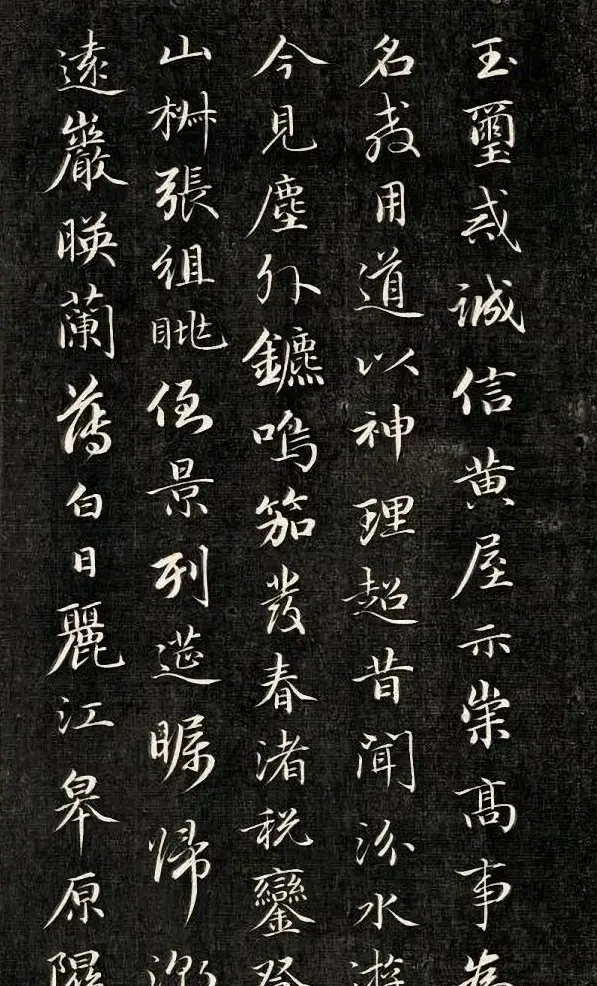 玉璽戒誠信黄屋示崇高事為
名教用道以神理超昔聞汾水遊
今見塵外鑣鳴笳發春渚税鑾登
山椒張組眺倒景列筵矚歸潮
遠巖暎蘭薄白日麗江皋原隰